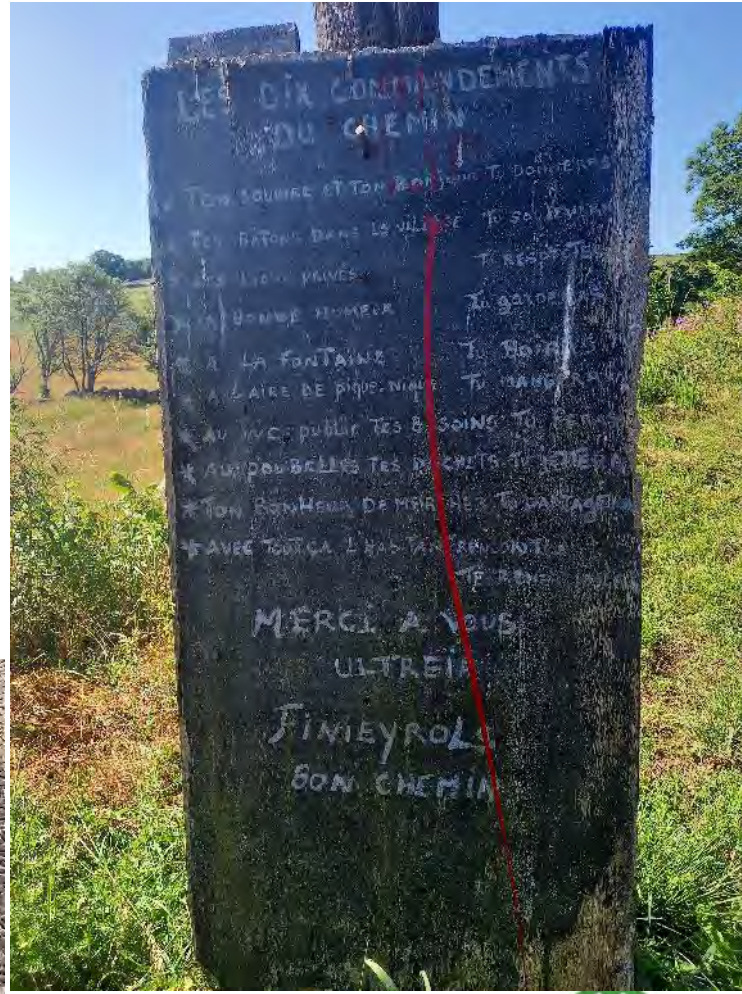 LES DIX COMMANDEMENTS
DU CHEMIN
TON SOURIRE ET TON BONJOUR TU DONNERAS
TES BÂTONS DANS LE VILLAGE TU SOULEVERA
LES LIEUX PRIVÉS TU RESPECTE
TA BONNE HUMEUR TU GARDERAS
* A LA FONTAINE TU BOIRAS
A L'AIRE DE PIQUE-NIQUE TU MANGERA
* AU WC PUBLIC TES BESOINS TU FERA
* AUX POUBELLES TES DÉCHETS TU JETTERA
* TON BONHEUR DE MARCHER TU PARTAGERA
* AVEC TOUT ÇA L'HABITANT RENCONTRÉ
TE
MERCI A VOUS
ULTREIA
FINIEYROLS
BON CHEMIN